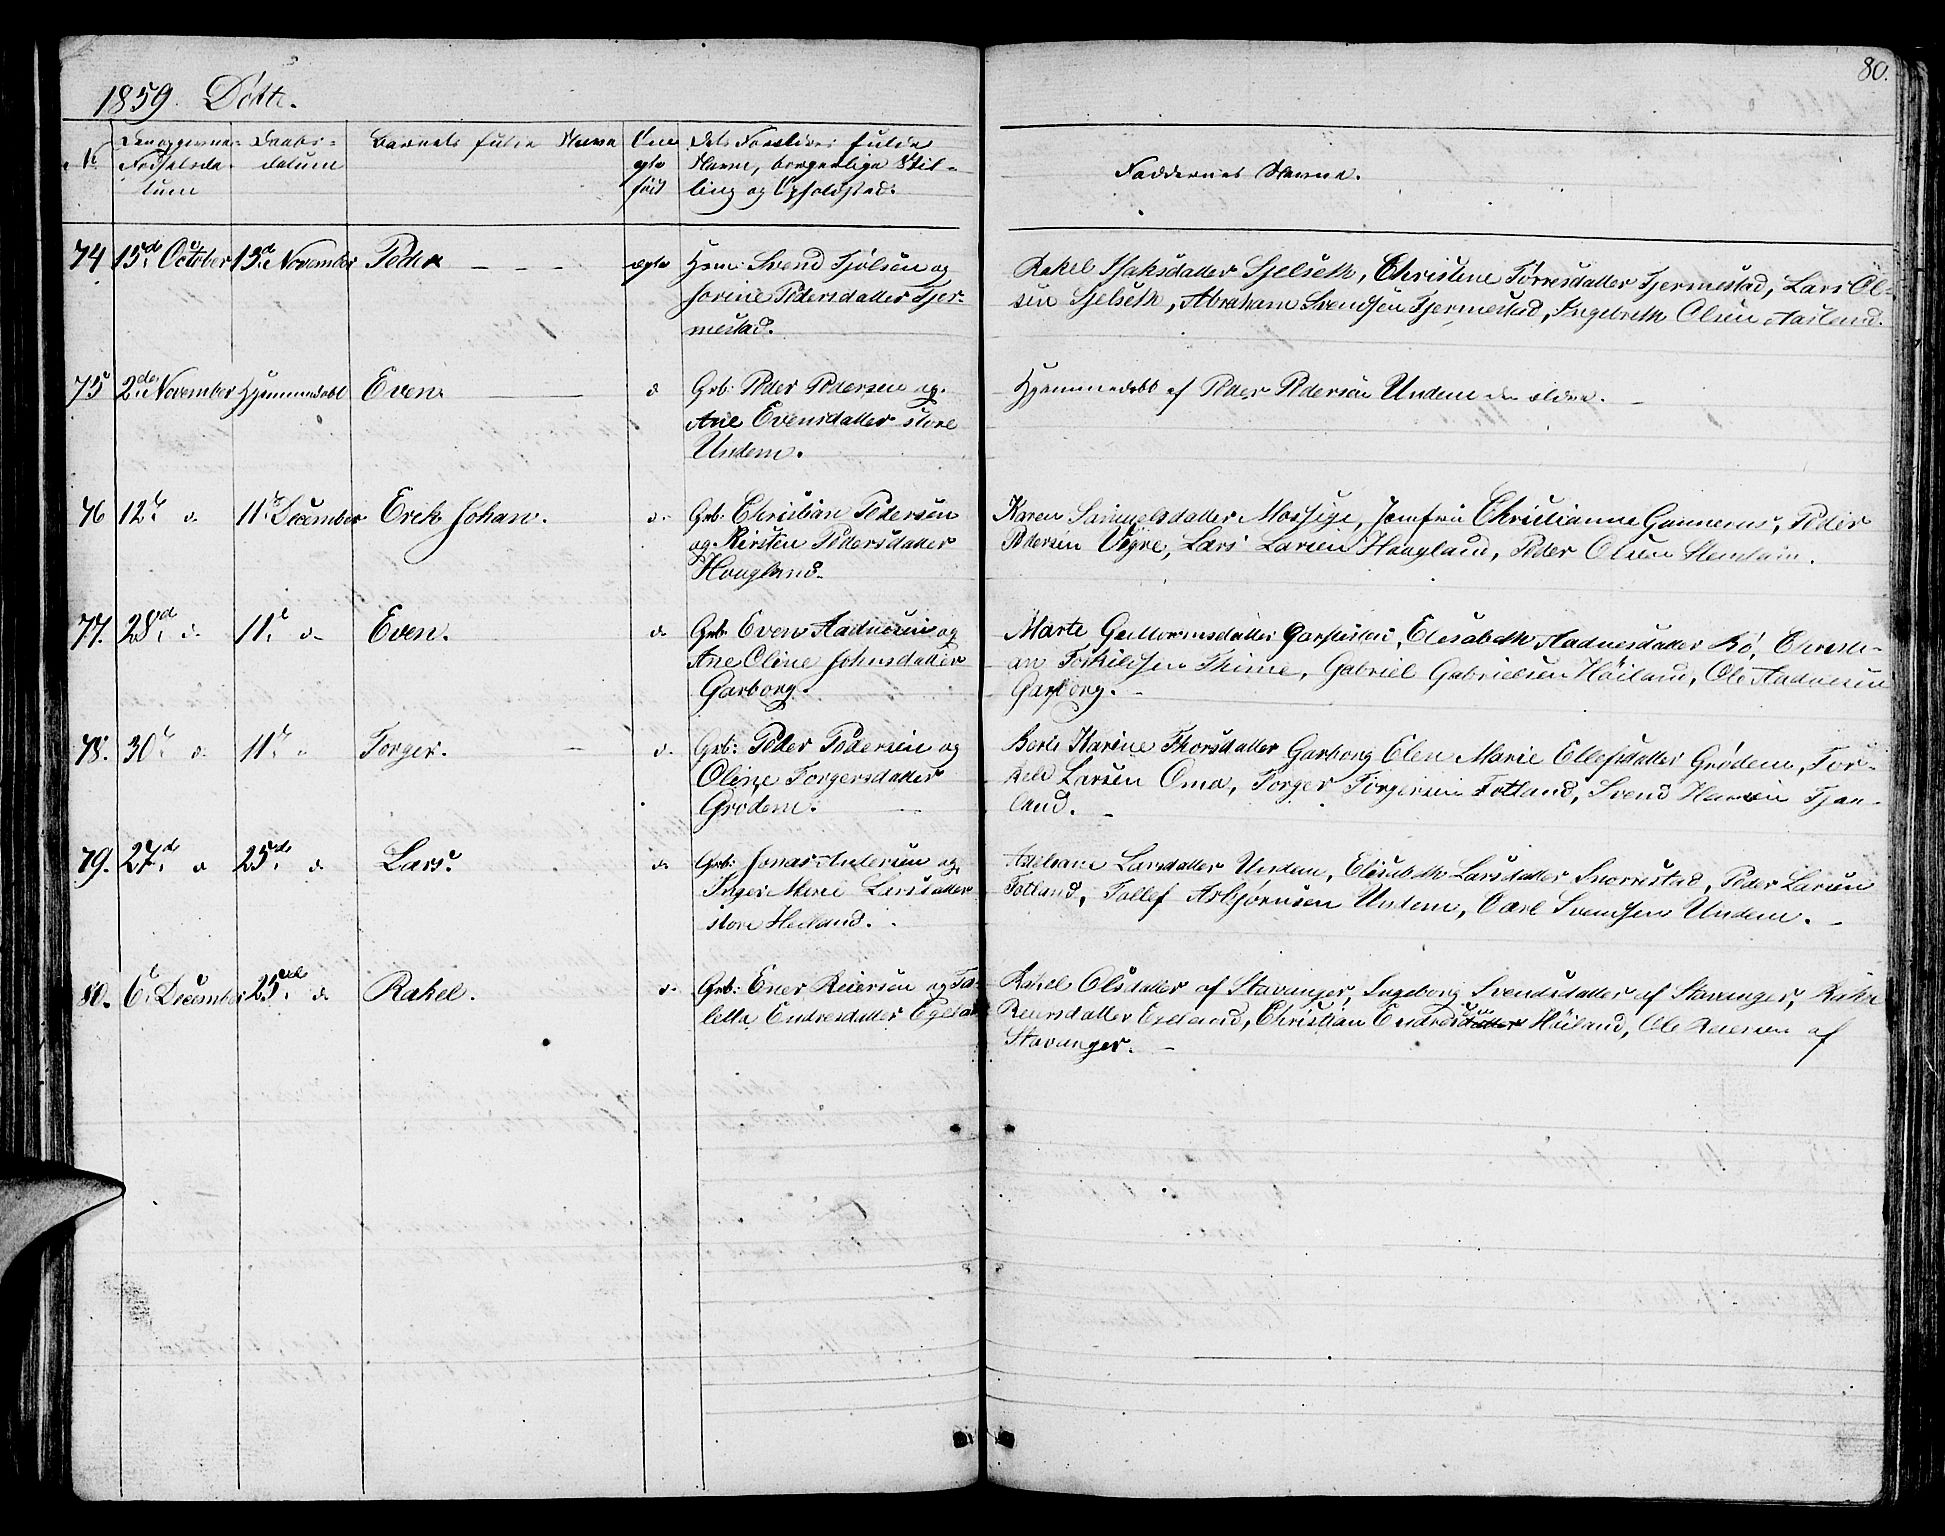 80.
1859. Døbte.
N.
Den opgivne Fødselsda-
tum
Daabs-
datum
Barnets fulde Navn
Om
ægte
født
Dets Forældres fulde
Navn, borgerlige Stil-
ling og Opholdsted.
Faddernes Navne.
74 15d. October 13d. November Peder ægte Hsm: Svend Tjølsen og
Serine Pedersdatter Tjer-
mestad.
Rakel Isaksdatter Sjelseth, Christene Tørresdatter Tjermestad, Lars Ol-
sen Sjelseth, Abraham Svendsen Tjermestad, Ingebreth Olsen Aasland.
75 2de November Hjemmedøbt Even. d Grb: Peder Pedersen og
Ane Evensdatter store
Undem.
Hjemmedøbt af Peder Pedersen Undem den ældre.
76 12te d. 11te December Erik Johan. d. Grb: Christian Pedersen
og Kirsten Pedersdatter
Hougland.
Karen Samuelsdatter Mossige, Jomfru Christianne Gunnerus, Peder
Pedersen Vegre, Lars Larsen Hougland, Peder Olsen
77. 28d. d. 11te d. Even. d. Grb: Even Aadnesen og
Ane Oline Johnsdatter
Garborg.
Marte Guttormsdatter Garpestad, Elisabeth Aadnesdatter Bø, Christi-
an Torkildsen Thime, Gabriel Gabrielsen Høiland, Ole Aadnesen
Garborg.
78. 30te d. 11te " Torger. d. Grb: Peder Pedersen og
Oline Torgersdatter
Grødem.
Berte Karine Thorsdatter Garborg, Elen Marie Ellefsdatter Grødem, Tor-
keld Larsen Oma, Torger Torgersen Fotland, Svend Hansen Tjaa-
land.
79. 27d. d 25de d Lars. d. Grb: Jonas Andersen og
Inger Marie Larsdatter
store Heiland.
Larsdatter Undem, Elisabeth Larsdatter Snorrestad, Peder Larsen
Fotland, Tollef Asbjørnsen Undem, Carl Svendsen Undem.
80. 6te December 25de d Rakel. d. Grb: Ener Reiersen og Ta-
letta Endresdatter Egeland
Rakel Olsdatter af Stavanger, Ingeborg Svendsdatter af Stavanger, Rakel
Reiersdatter Egeland, Christian Endresen Høiland, Ole Reiersen af
Stavanger.